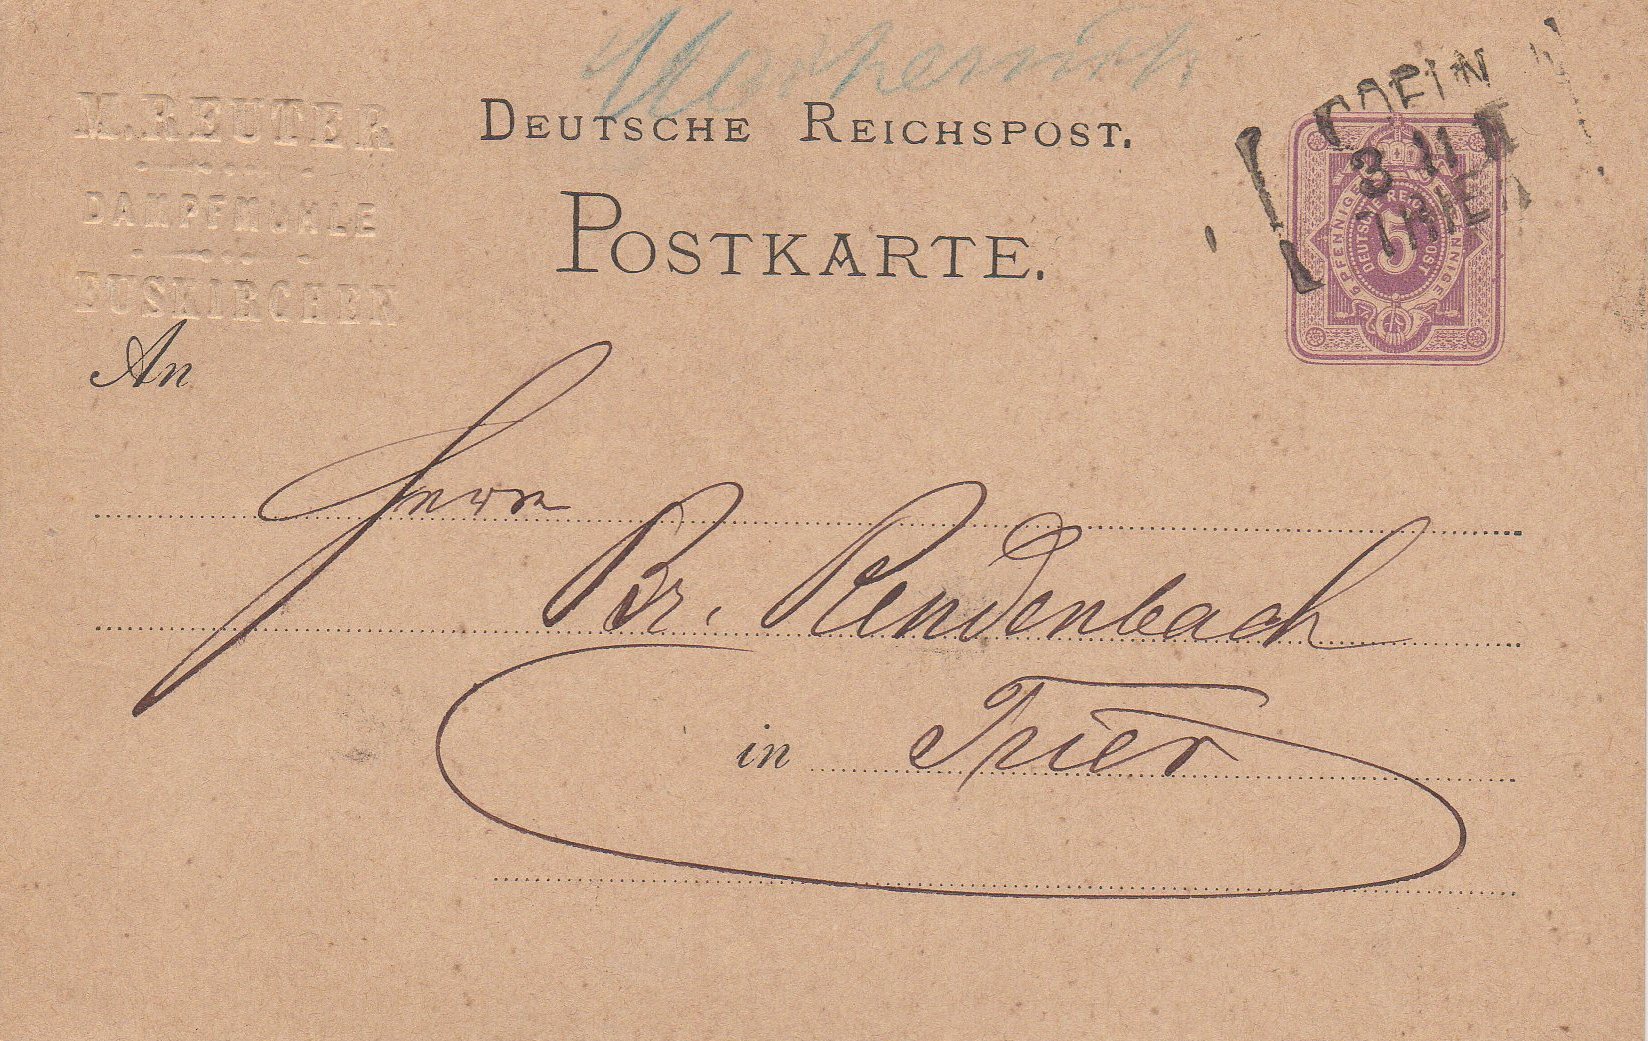 M. REUTER
DAMPFMÜHLE
EUSKIRCHEN
DEUTSCHE REICHSPOST.
POSTKARTE.
COELN
3 11
TRIER
5 PFENNIGE
DEUTSCHE REICHSPOST
5
5 PFENNIGE
An
Herrn
Br. Rendenbach
in Trier